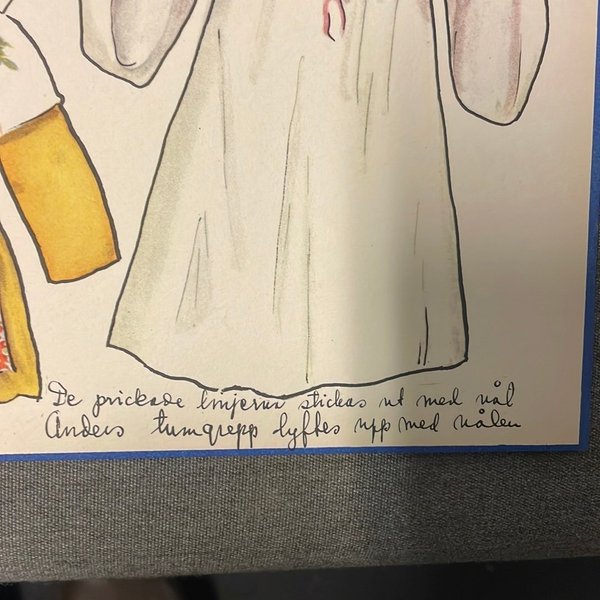 De prickade linjerna stickas ut med nål
Anders tumgrepp lyftes upp med nålen